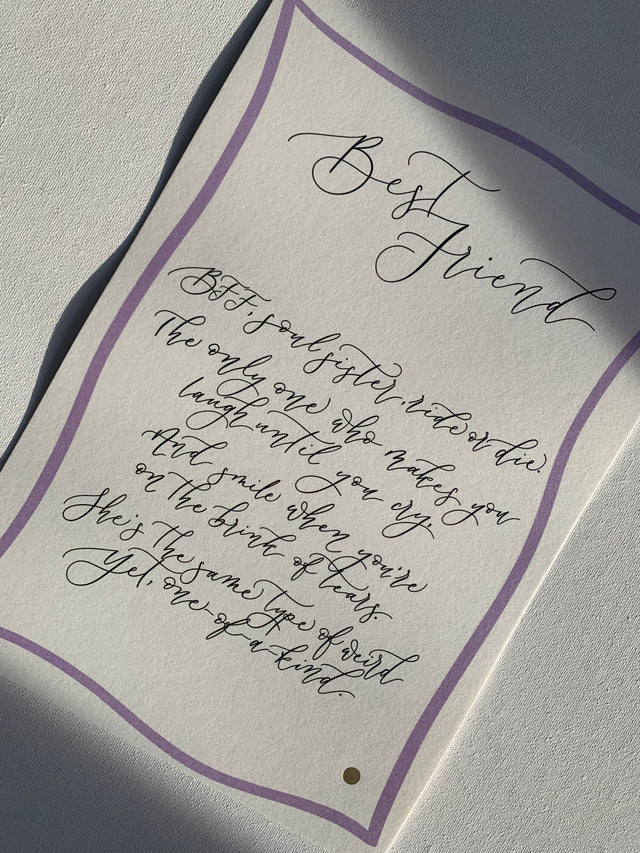 Best
Friend
BFF, soul sister, ride or die.
The only one who makes you
laugh until you cry.
And smile when you're
on the brink of tears.
She's the same type of weird
Yet, one-of-a-kind.